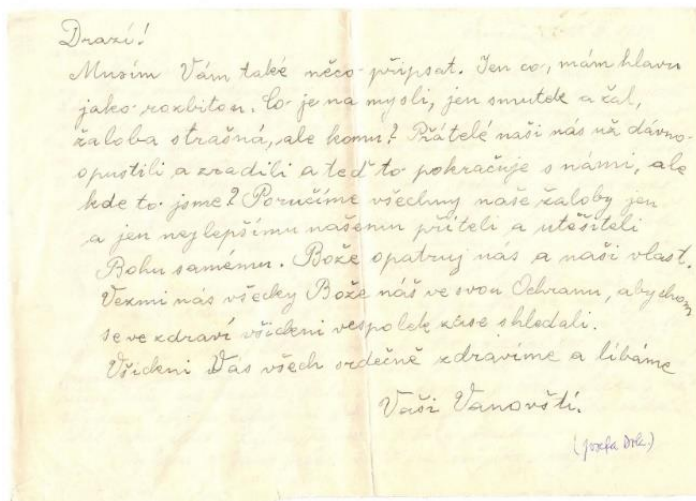 Drazí!
Musím Vám také něco připsat. Jen co, mám hlavu
jako rozbitou. Co je na mysli, jen smutek a žal,
žaloba strašná, ale komu? Přátelé naši nás už dávno
opustili a zradili a teď to pokračuje s námi, ale
kde to jsme? Poručíme všechny naše žaloby jen
a jen nejlepšímu našemu příteli a utěšiteli
Bohu samému. Bože opatruj nás a naši vlast.
Vezmi nás všecky Bože náš ve svou Ochranu, abychom
se ve zdraví všickni vespolek zase shledali.
Všickni Vás všech srdečně zdravíme a líbáme
Vaši Vanovští.
(Josefa